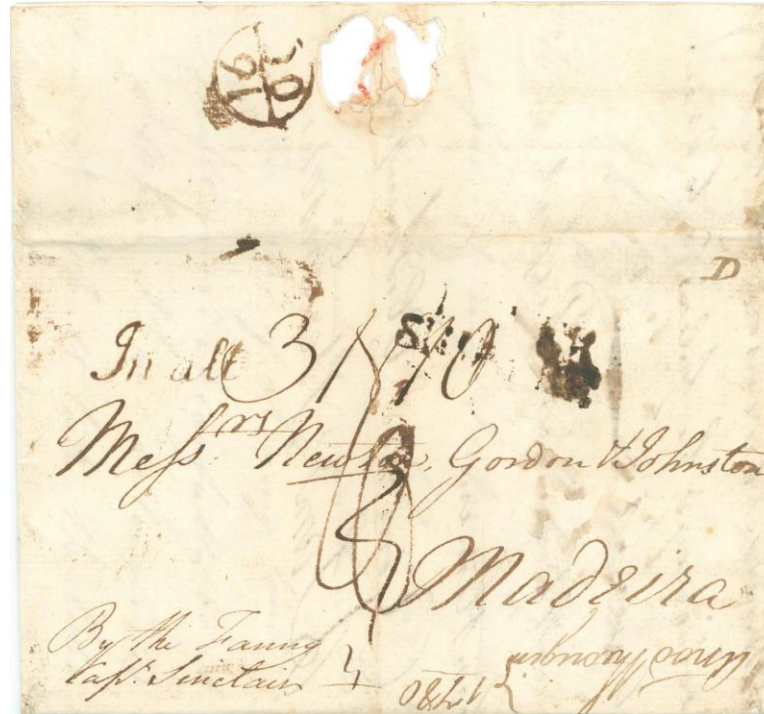 16
OC
D
In all 3 N 10
Mess.rs Newton, Gordon & Johnston
Madeira
By the Fanny
Capt. Sinclair
1780